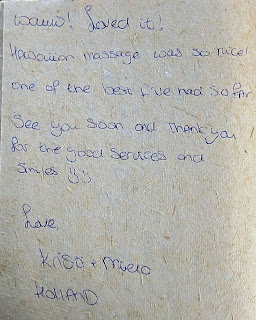 wauw! Loved it!
Hawaiian massage was so nice!
one of the best I've had so far
See you soon and Thank you
for the good services and
smiles
Love,
Krisa +
HOLLAND